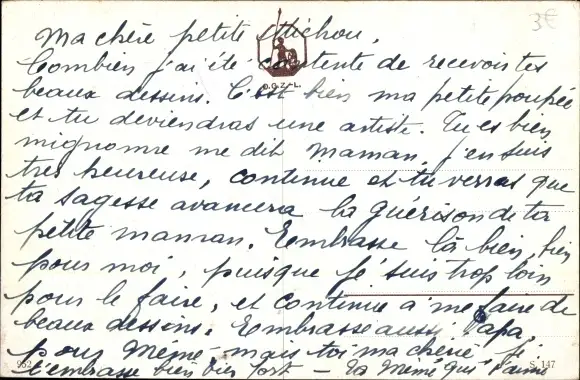 3€
Ma chère petite Michou,
Combien j'ai été contente de recevoir tes
beaux dessins. C'est bien ma petite poupée
et tu deviendras une artiste. Tu es bien
mignonne me dit Maman, j'en suis
très heureuse, continue et tu verras que
ta sagesse avancera la guérison de ta
petite maman. Embrasse la bien, bien
pour moi, puisque je suis trop loin
pour le faire, et continue à me faire de
beaux dessins. Embrasse aussi Papa
pour Mémé - mais toi ma chérie je
t'embrasse bien bien fort - Ta Mémé qui t'aime
S. 147